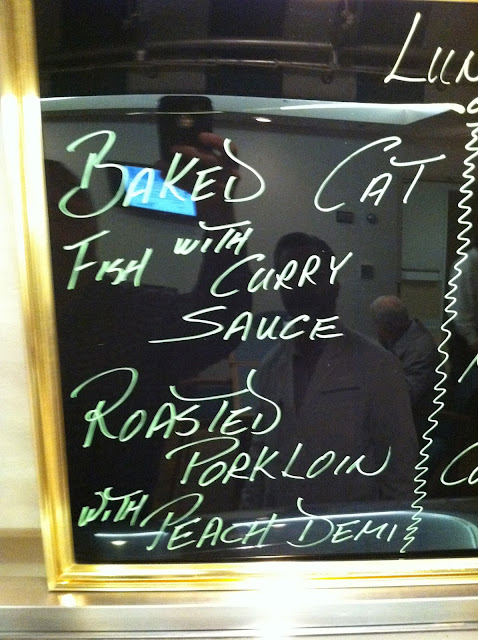 BAKED CAT
FISH WITH CURRY
SAUCE
ROASTED
PORKLOIN
WITH PEACH DEMI